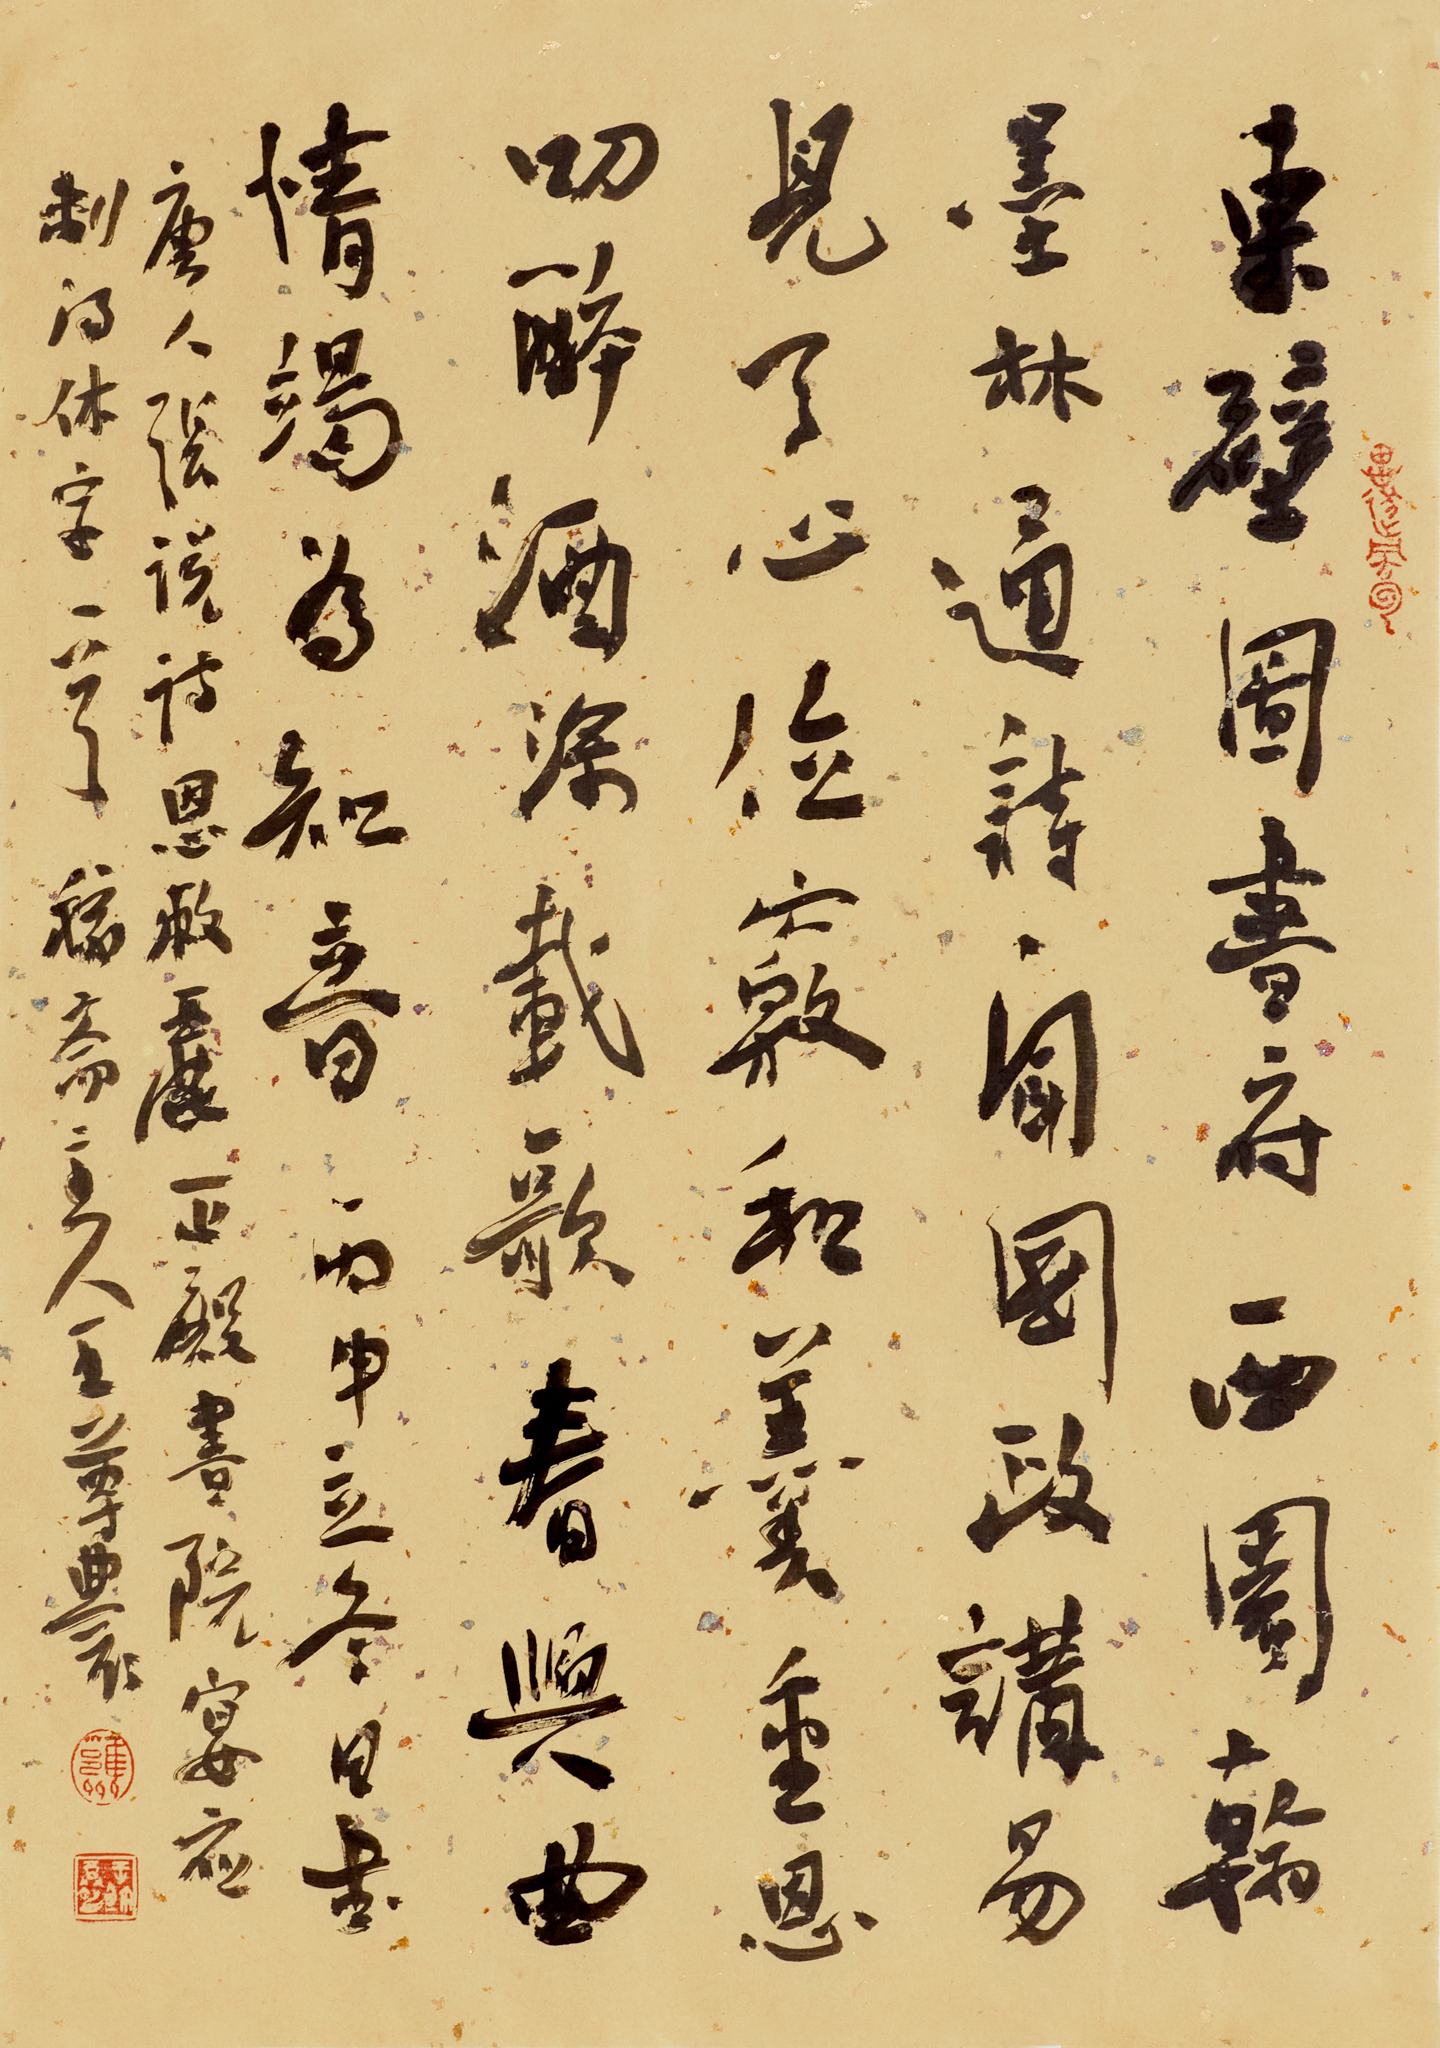 東壁圖書府西園翰
墨林通詩聞國政講易
見天心位竊和羹重恩
叨醉酒深載歌春興曲
情竭為知音 丙申立冬日書
唐人張說詩恩敕麗正殿書院宴應
制得林字一首 稼齋主人王尊農